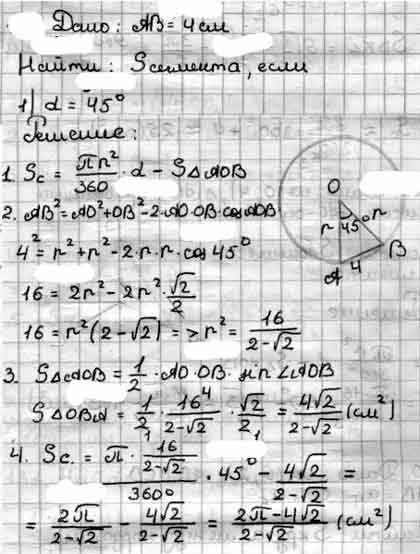 Дано: AB = 4 см
Найти: Sсегмента, если
1) d = 45°
Решение:
1. Sc = πr²/360 · d − S△AOB
2. AB² = AO² + OB² − 2·AO·OB·cosAOB
4² = r² + r² − 2·r·r·cos 45°
16 = 2r² − 2r²·√2/2
16 = r²(2−√2) => r² = 16/(2−√2)
3. S△AOB = 1/2 · AO·OB · sin∠AOB
S△OBA = 1/2 · 16/(2−√2) · √2/2 = 4√2/(2−√2) (см²)
4. Sc. = (π · 16/(2−√2))/360° · 45° − 4√2/(2−√2) =
= 2π/(2−√2) − 4√2/(2−√2) = (2π−4√2)/(2−√2) (см²)
O
r 45° r
A 4 B